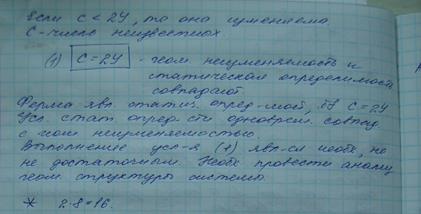 Если С < 2У, то она изменяема
С-число неизвестных.
(1) С=2У - геом. неизменяемость и
статическая определимость
совпадают.
Ферма-явл. статич. опред-мой, т.к С=2У
Усл. стат. опред-сти одноврем. совпад.
с геом неизменяемостью.
Выполнение усл-я (1) явл-ся необх, но
не достаточным. Необх провести анализ
геом. структуры системы
* 2·8=16.